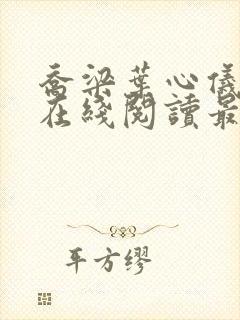 喬梁葉心儀
在綫閱讀最
平方繆